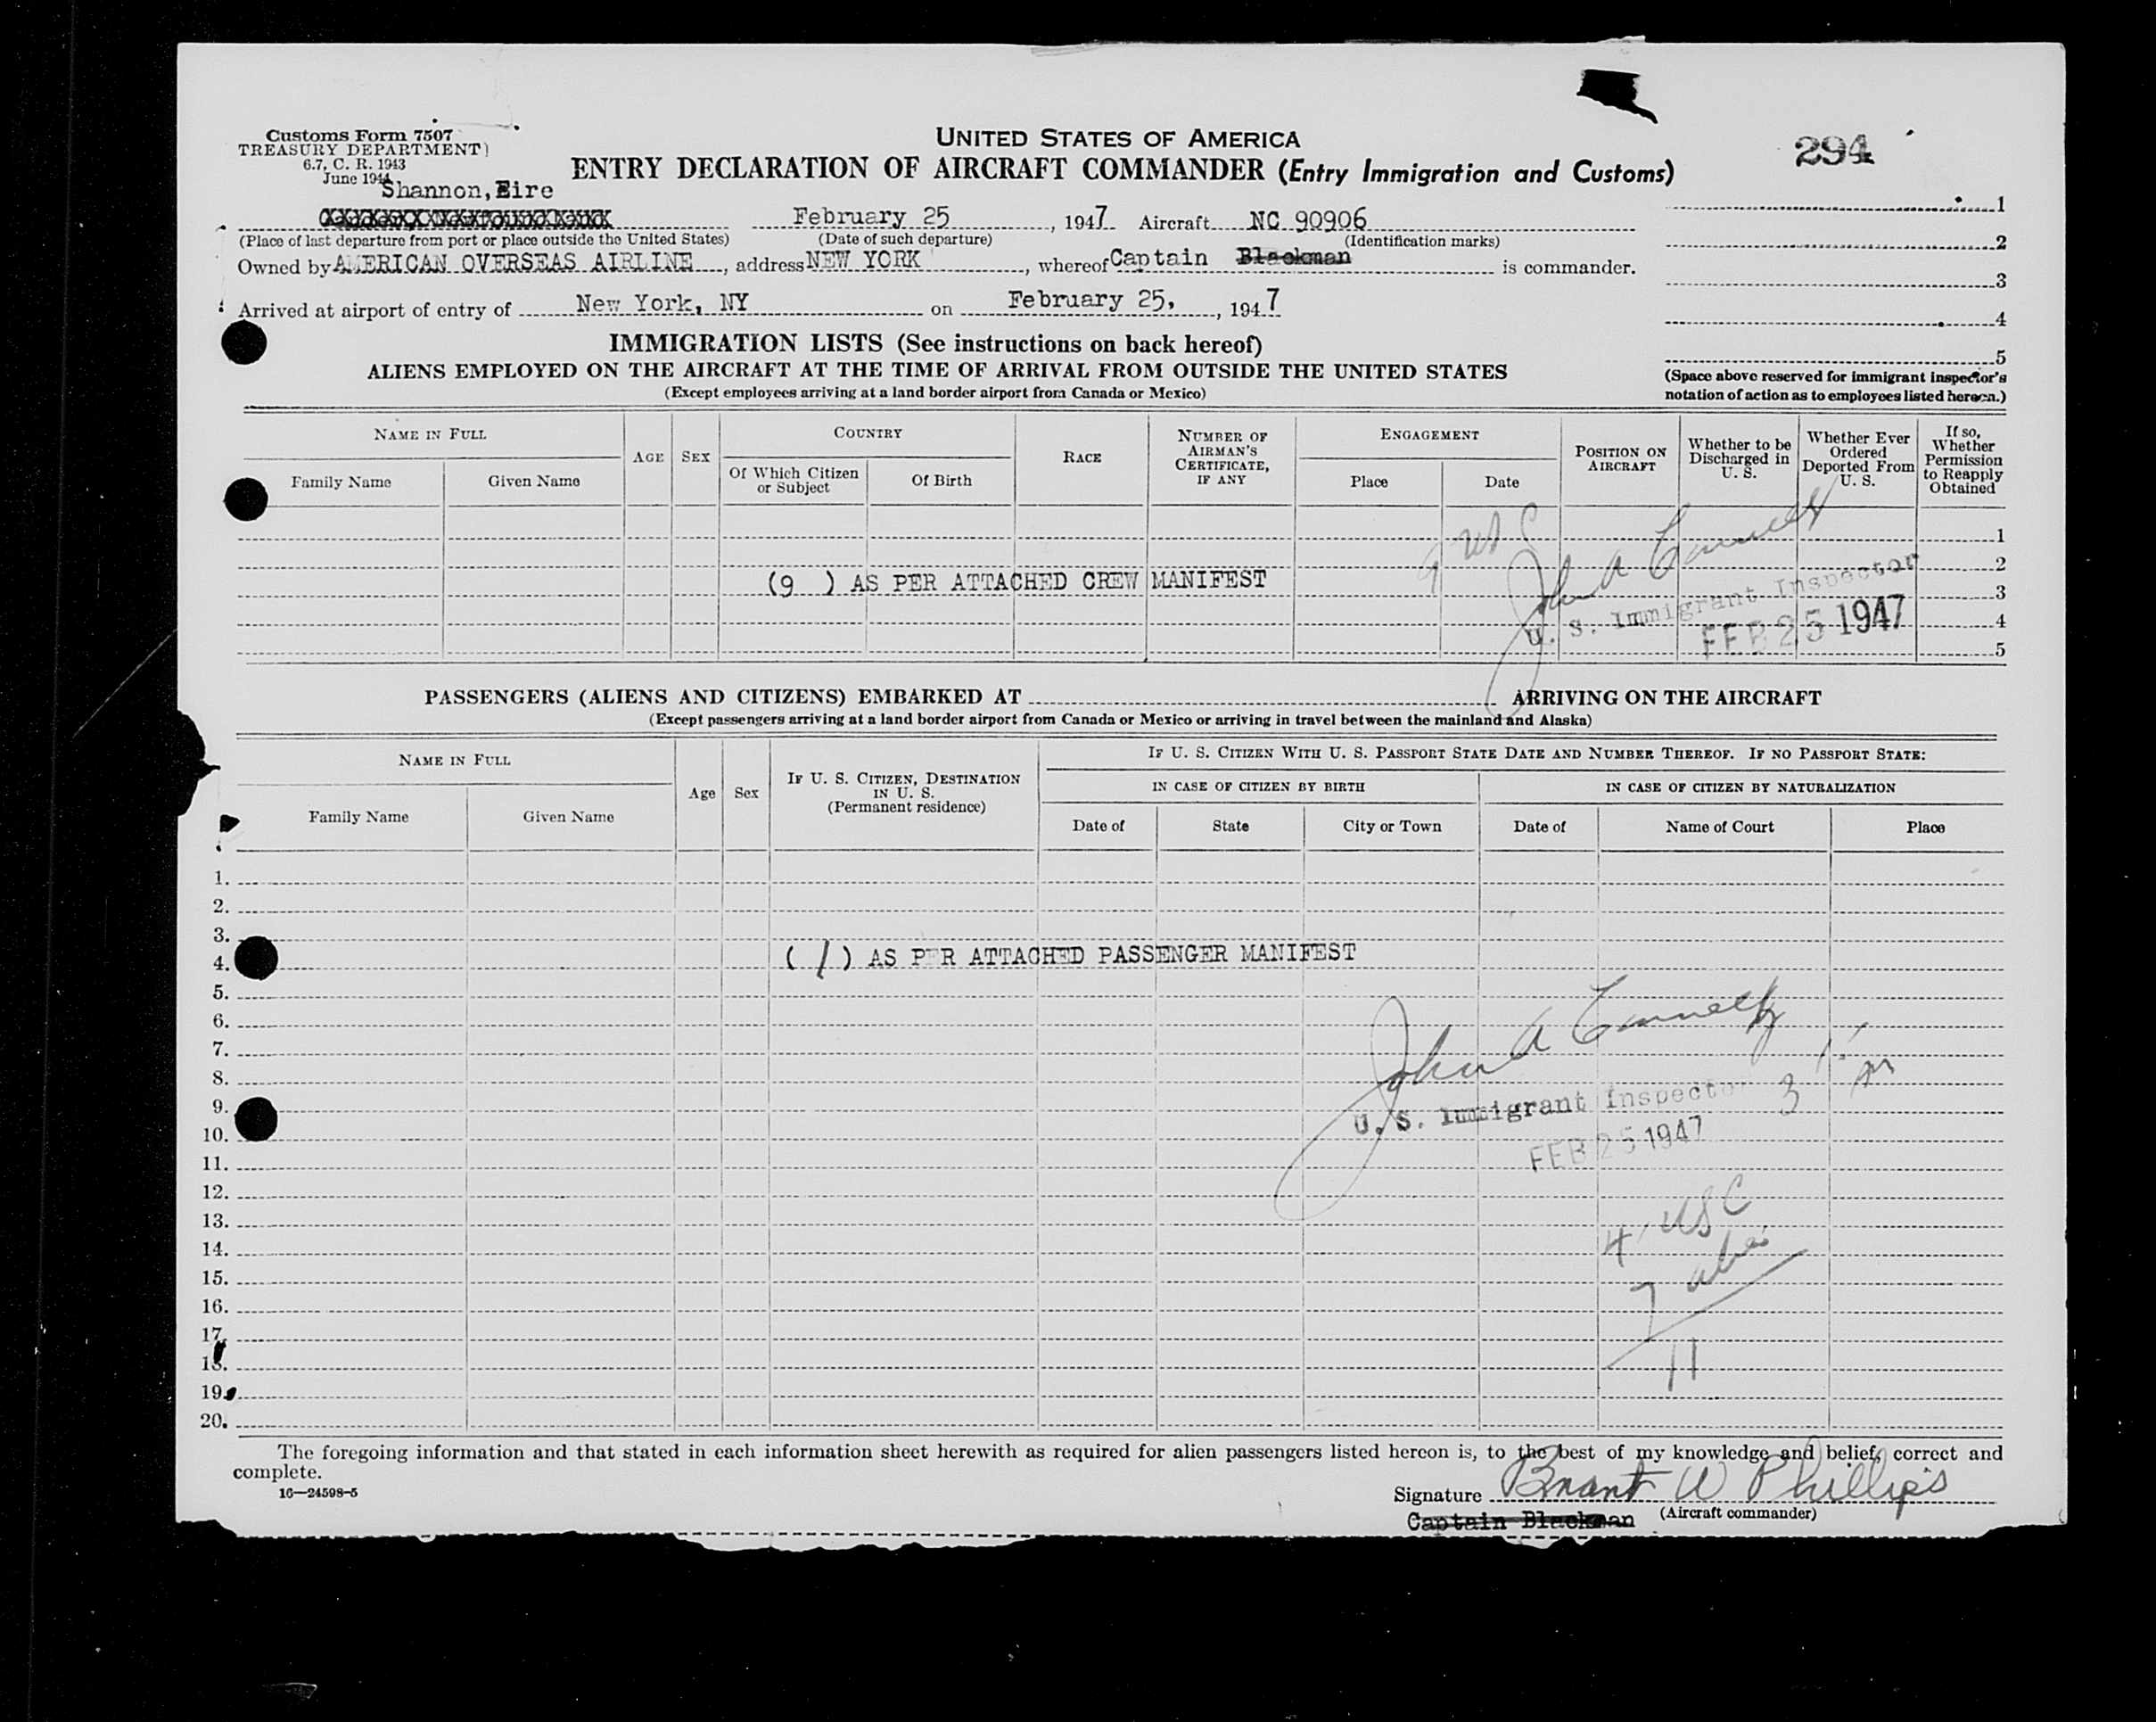 Customs Form 7507
TREASURY DEPARTMENT
6.7, C. R. 1943
June 1944
UNITED STATES OF AMERICA
ENTRY DECLARATION OF AIRCRAFT COMMANDER (Entry Immigration and Customs)
294
Shannon, Eire
February 25, 1947 Aircraft NC 90906
(Place of last departure from port or place outside the United States) (Date of such departure) (Identification marks)
Owned by AMERICAN OVERSEAS AIRLINE, address NEW YORK, whereof Captain Blackman is commander.
Arrived at airport of entry of New York, NY on February 25, 1947
1
2
3
4
5
(Space above reserved for immigrant inspector's
notation of action as to employees listed hereon.)
IMMIGRATION LISTS (See instructions on back hereof)
ALIENS EMPLOYED ON THE AIRCRAFT AT THE TIME OF ARRIVAL FROM OUTSIDE THE UNITED STATES
(Except employees arriving at a land border airport from Canada or Mexico)
NAME IN FULL
Family Name
Given Name
AGE
SEX
COUNTRY
Of Which Citizen
or Subject
Of Birth
RACE
NUMBER OF
AIRMAN'S
CERTIFICATE,
IF ANY
ENGAGEMENT
Place
Date
POSITION ON
AIRCRAFT
Whether to be
Discharged in
U. S.
Whether Ever
Ordered
Deported From
U. S.
If so,
Whether
Permission
to Reapply
Obtained
1
2
3
4
5
9 USC
(9 ) AS PER ATTACHED CREW MANIFEST
John A Connelly
U. S. Immigrant Inspector
FEB 25 1947
PASSENGERS (ALIENS AND CITIZENS) EMBARKED AT ARRIVING ON THE AIRCRAFT
(Except passengers arriving at a land border airport from Canada or Mexico or arriving in travel between the mainland and Alaska)
NAME IN FULL
Family Name
Given Name
Age
Sex
IF U. S. CITIZEN, DESTINATION
IN U. S.
(Permanent residence)
IF U. S. CITIZEN WITH U. S. PASSPORT STATE DATE AND NUMBER THEREOF. IF NO PASSPORT STATE:
IN CASE OF CITIZEN BY BIRTH
IN CASE OF CITIZEN BY NATURALIZATION
Date of
State
City or Town
Date of
Name of Court
Place
1.
2.
3.
4.
5.
6.
7.
8.
9.
10.
11.
12.
13.
14.
15.
16.
17.
18.
19.
20.
( / ) AS PER ATTACHED PASSENGER MANIFEST
John A Connelly
U. S. Immigrant Inspector
FEB 25 1947
3
4 USC
7
11
The foregoing information and that stated in each information sheet herewith as required for alien passengers listed hereon is, to the best of my knowledge and belief, correct and
complete.
16—24598-5
Signature Brant W Phillips
Captain Blackman (Aircraft commander)